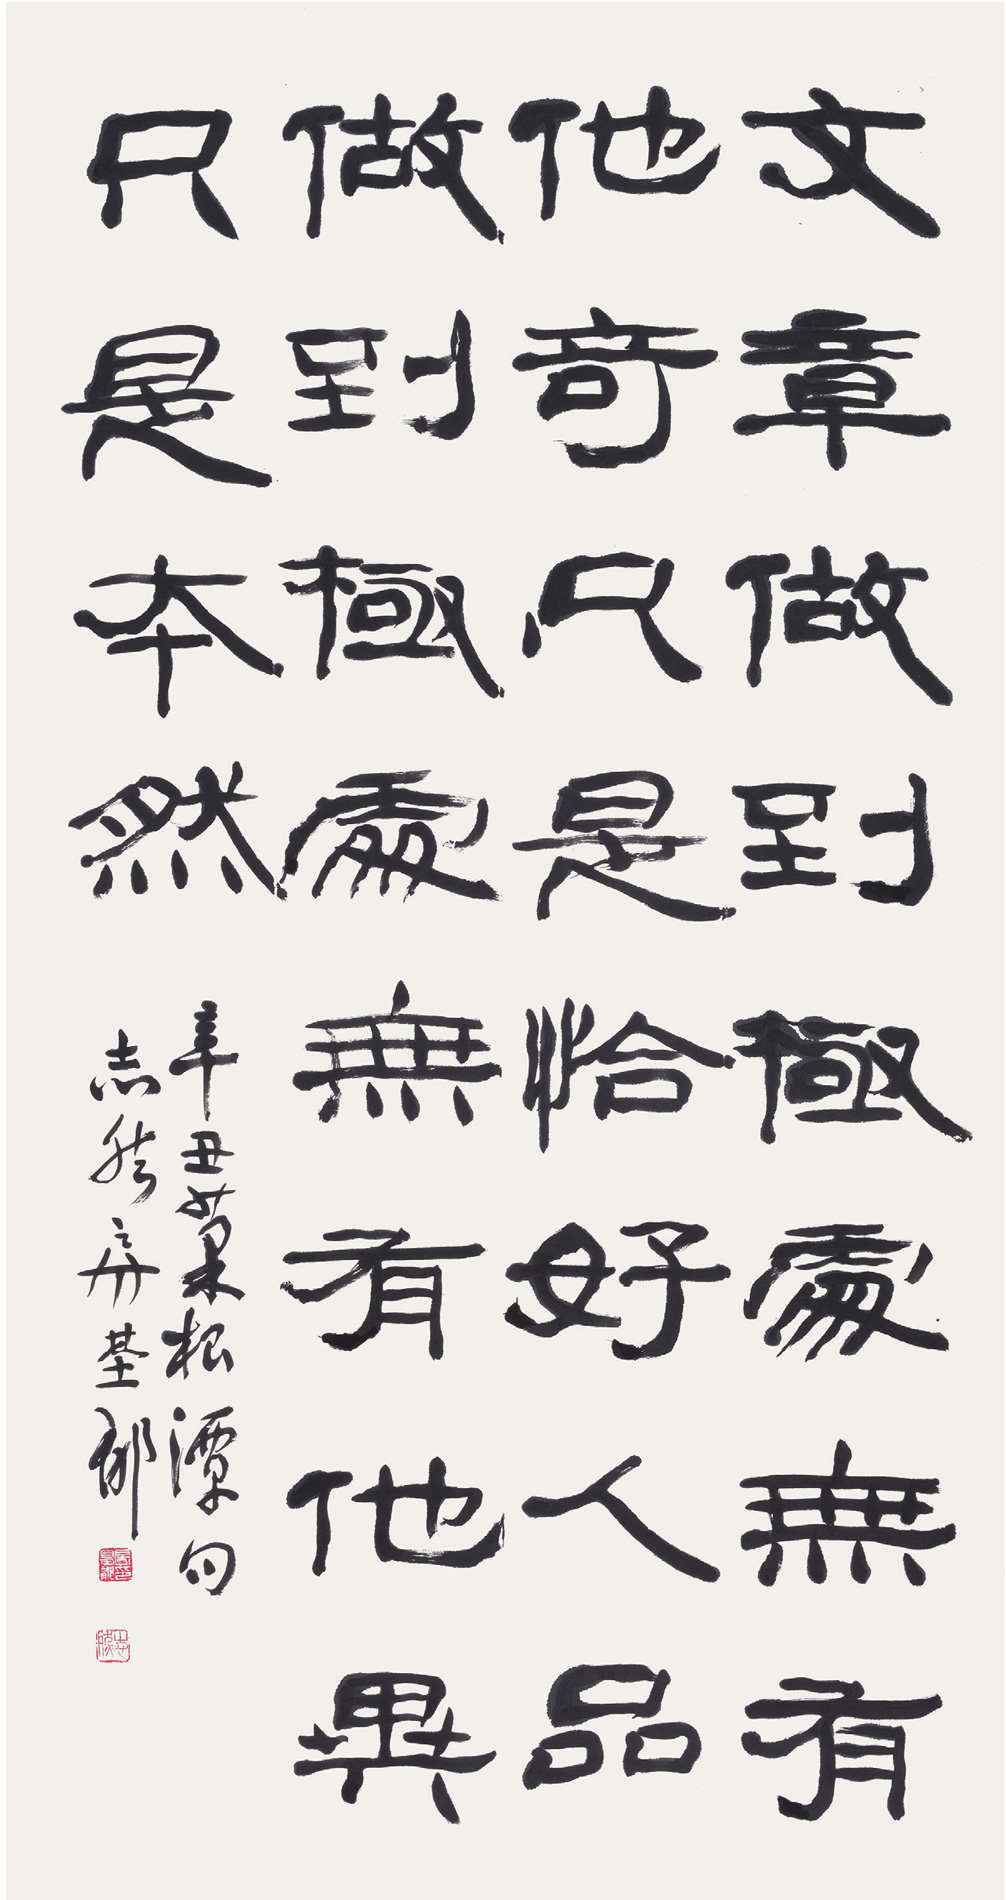 文章做到極處無有
他奇只是恰好人品
做到極處無有他異
只是本然
辛丑菜根潭句
志然齋基郁